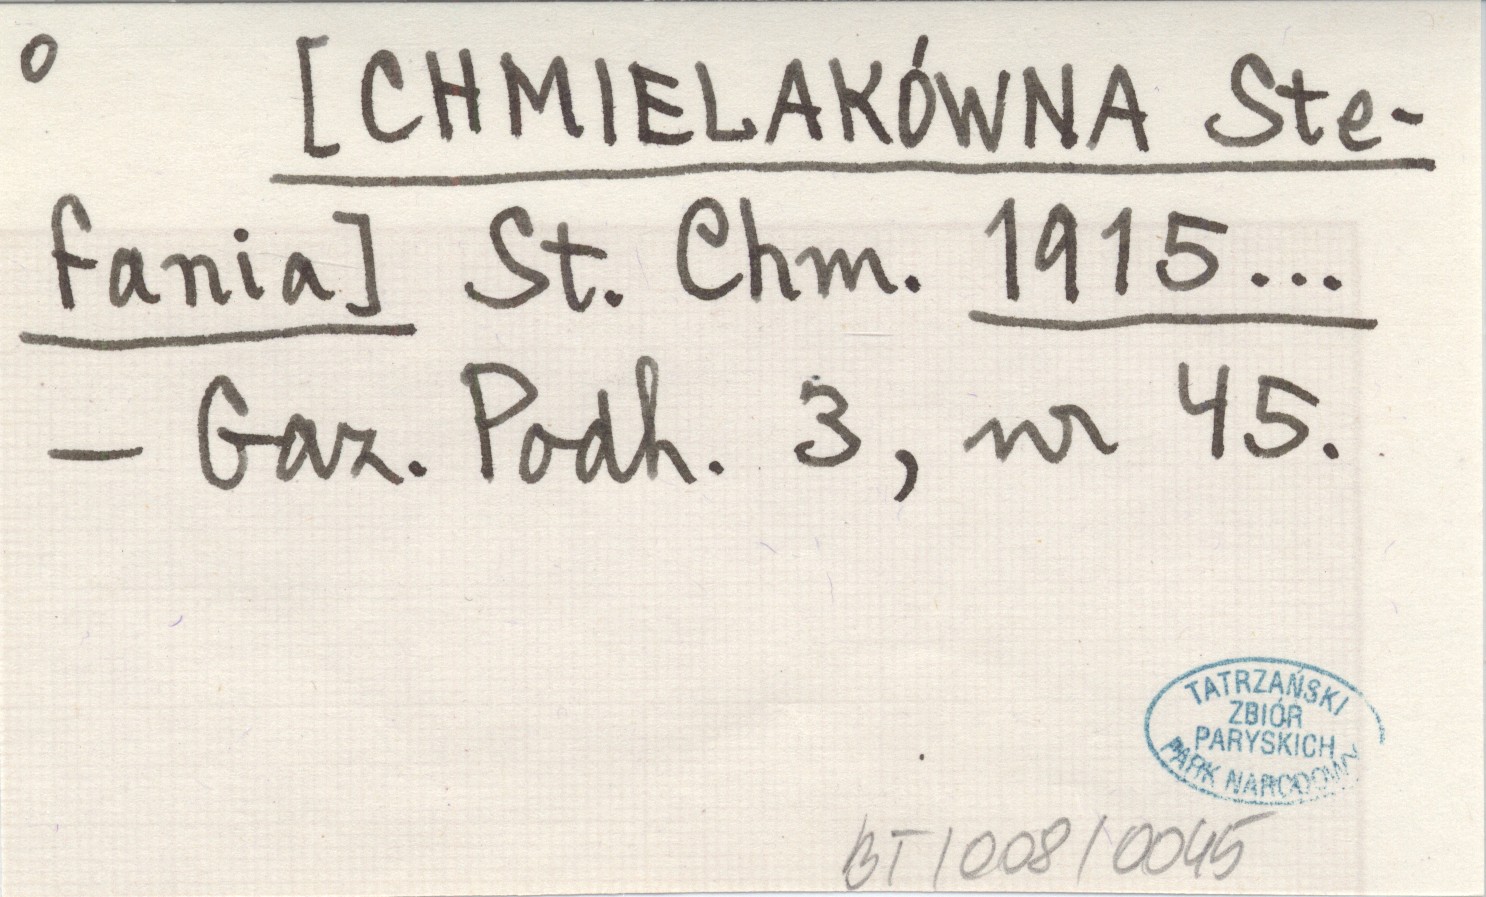 o [CHMIELAKÓWNA Ste-
fania] St. Chm. 1915...
– Gaz. Podh. 3, nr 45.
TATRZAŃSKI
ZBIÓR
PARYSKICH
PARK NARODOWY
BT/008/0045